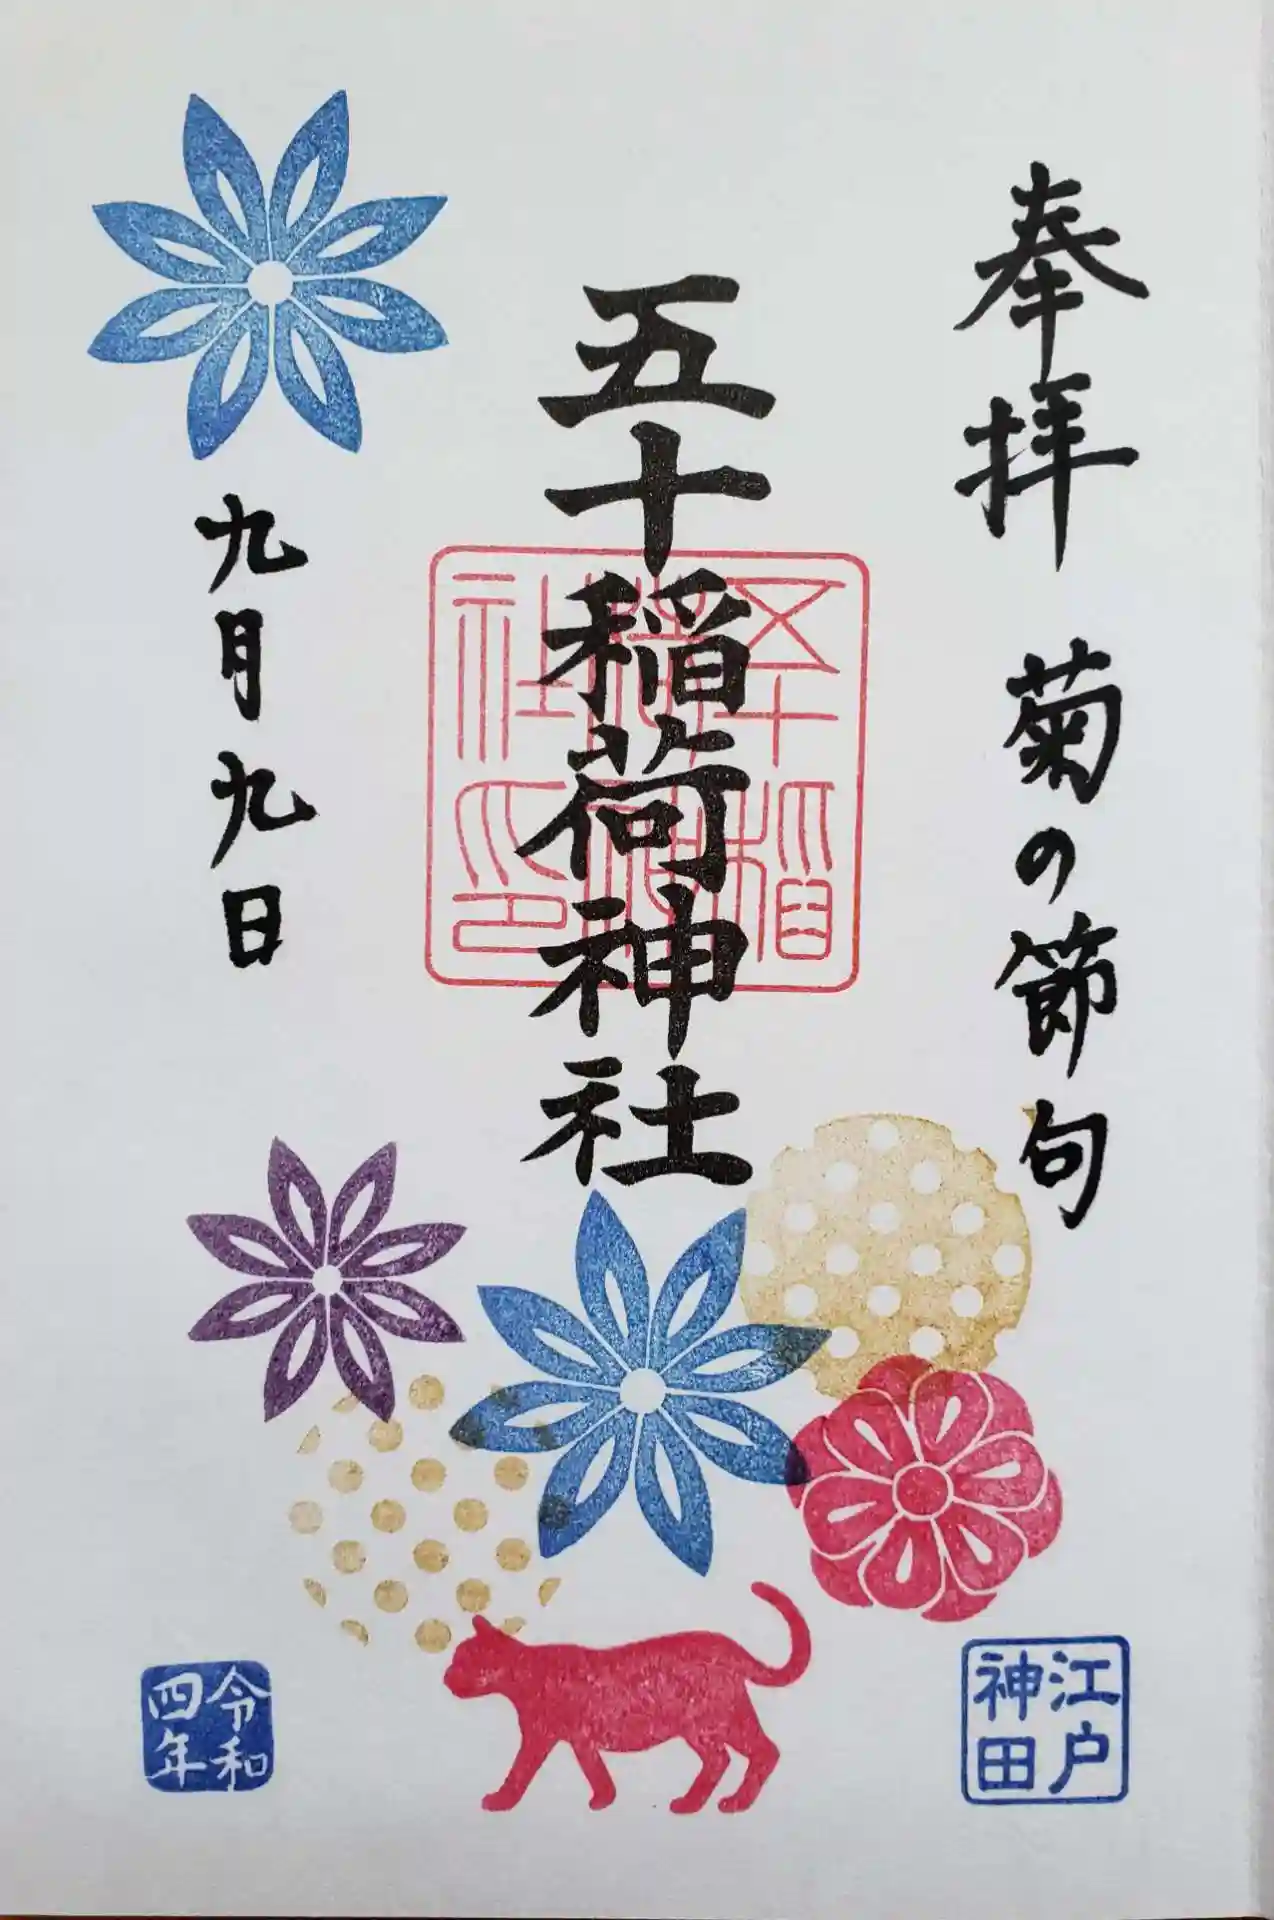 奉拝 菊の節句
江戸
神田
五十稲荷神社
五十稲
荷神
社印
九月九日
令和
四年